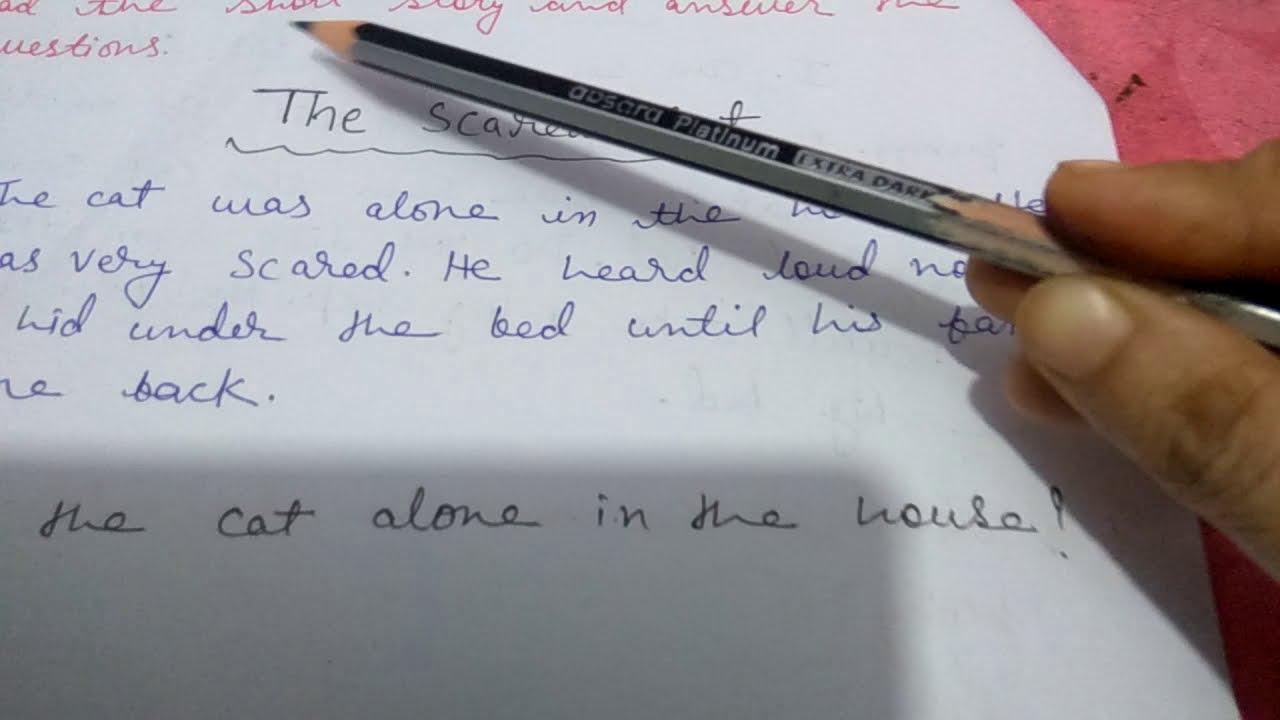 the short story and answer the
questions.
The Scared
The cat was alone in the
was very scared. He heard loud
hid under the bed until his
back.
the cat alone in the house?
apsara Platinum EXTRA DARK